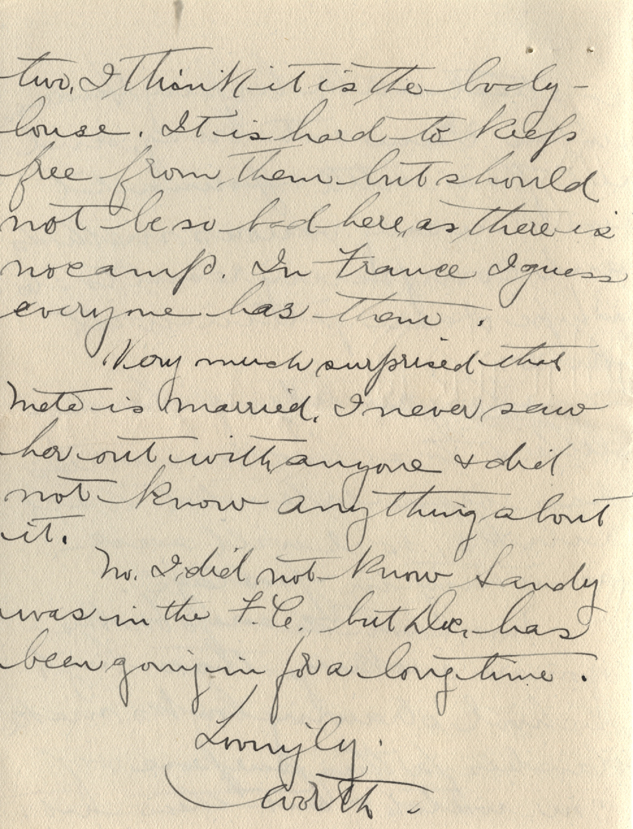 two, I think it is the body-
louse. It is hard to keep
free from them but should
not be so bad here, as there is
no camp. In France I guess
everyone has them.
Very much surprised that
Meta is married. I never saw
her out with anyone & did
not know anything about
it.
No. I did not know Sandy
was in the F.C., but Doc. has
been going in for a long time.
Lovingly.
Worth.